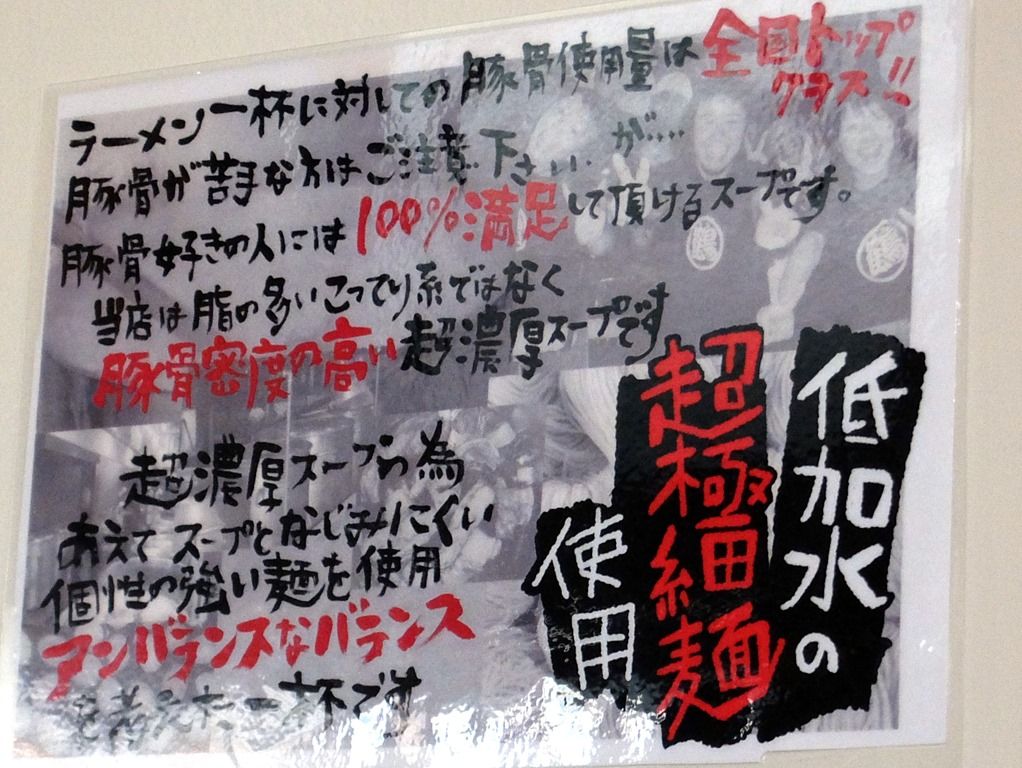 ラーメン一杯に対しての豚骨使用量は全国トップクラス!!
豚骨が苦手な方はご注意下さい が....
豚骨好きの人には100%満足して頂けるスープです。
当店は脂の多いこってり系ではなく
豚骨密度の高い超濃厚スープです
超濃厚スープの為
あえてスープとなじみにくい
個性の強い麺を使用
アンバランスなバランス
を考えた一杯です
低加水の
超極細麺
使用